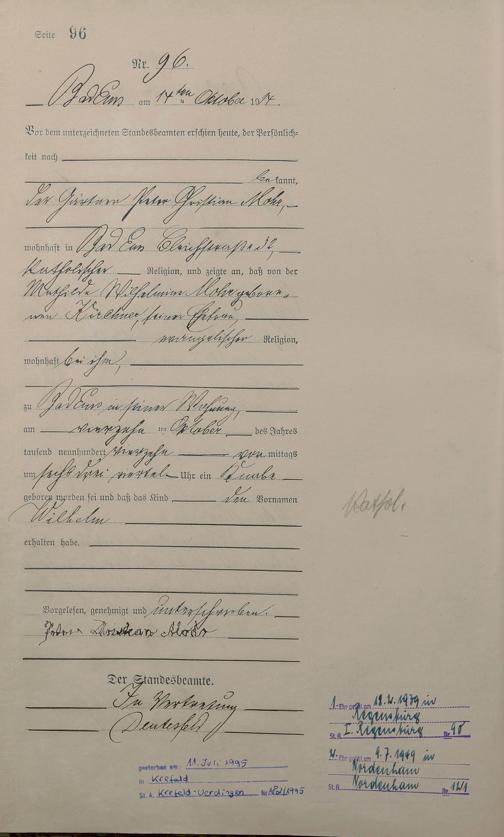 Seite 96
Nr. 96.
Bad Ems am 14ten Oktober 1914.
Vor dem unterzeichneten Standesbeamten erschien heute, der Persönlich-
keit nach
bekannt,
der Gärtner Peter Christian Mohr,
wohnhaft in Bad Ems Bleichstraße
katholischer Religion, und zeigte an, daß von der
Mathilde Wilhelmine Mohr gebore-
nen Kirchner, seiner Ehefrau,
evangelischer Religion,
wohnhaft bei ihm,
zu Bad Ems in seiner Wohnung,
am vierzehn ten Oktober des Jahres
tausend neunhundert vierzehn vormittags
um sechs drei viertel Uhr ein Knabe
geboren worden sei und daß das Kind den Vornamen
Wilhelm
erhalten habe.
Kathol.
Vorgelesen, genehmigt und unterschrieben.
Peter Christian Mohr
Der Standesbeamte.
In Vertretung
gestorben am: 11. Juli 1995
in Krefeld
St. A. Krefeld-Uerdingen Nr.
1. Ehe geschl. am 18.4.1939 in
Regensburg
St. A. I. Regensburg Nr.
2. Ehe geschl. am 9.7.1949 in
Nordenham
St. A. Nordenham Nr. 121